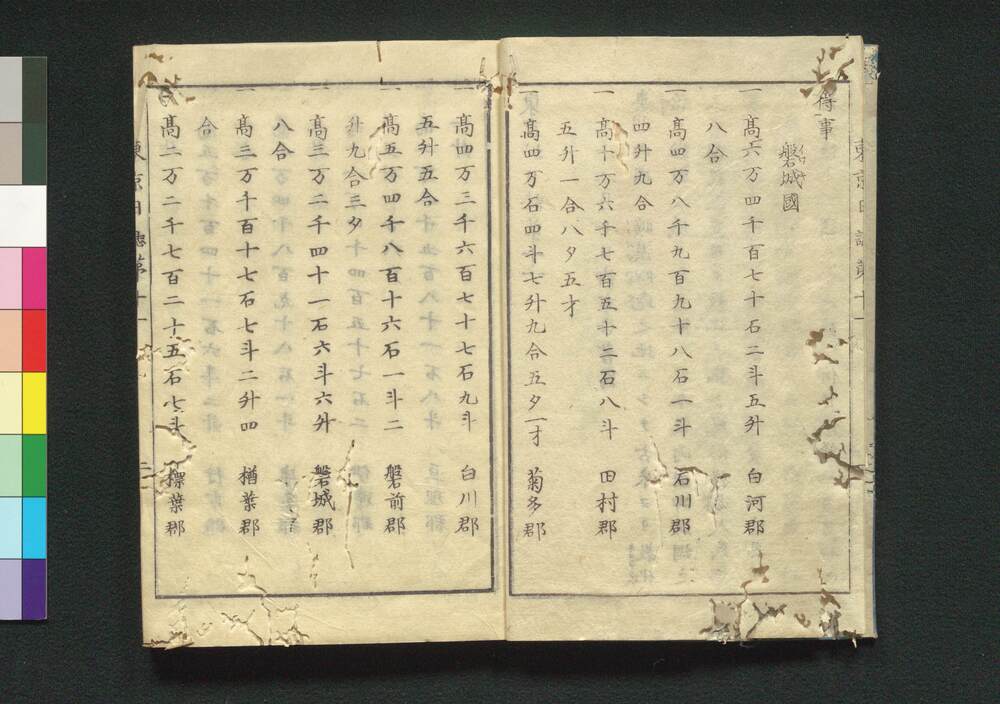 得事
磐城國
一高六万四千百七十石二斗五升 白河郡
八合
一高四万八千九百九十八石一斗 石川郡
四升九合
一高十万六千七百五十二石八斗 田村郡
五升一合八夕五才
一高四万石四斗七升九合五夕一才 菊多郡
一高四万三千六百七十七石九斗 白川郡
五升五合
一高五万四千八百十六石一斗二 磐前郡
升九合三夕
一高三万二千四十一石六斗六升 磐城郡
八合
一高三万千百十七石七斗二升四 楢葉郡
合
高二万二千七百二十五石七斗 標葉郡
東京日誌第十一